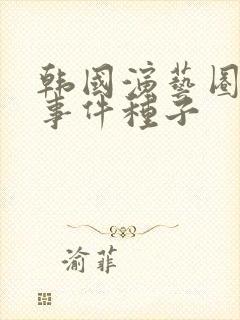 韩國演藝圈
事件種子
渝菲